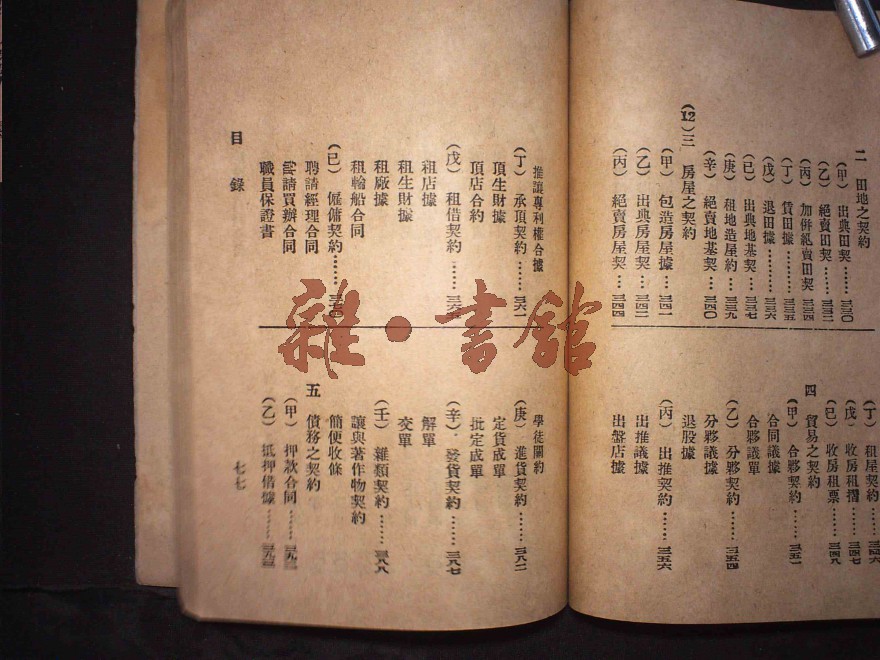 二　田地之契約
（甲）出典田契……三三〇
（乙）絕賣田契……三三二
（丙）加併絕賣田契　三三四
（丁）賃田據…………三三五
（戊）退田據…………三三六
（己）出典地基契……三三七
（庚）租地造屋約……三三九
（辛）絕賣地基契……三四〇
(12)三　房屋之契約
（甲）包造房屋據……三四一
（乙）出典房屋契……三四二
（丙）絕賣房屋契……三四四
（丁）租屋契約……三四六
（戊）收房租摺……三四七
（己）收房租票……三四八
四　貿易之契約
（甲）合夥契約……三五一
合同議據
合夥議單
（乙）分夥契約……三五四
分夥議據
退股據
（丙）出推契約……三五六
出推議據
出盤店據
推讓專利權合據
（丁）承頂契約……三六一
頂生財據
頂店合約
（戊）租借契約……三六
租店據
租生財據
租廠據
租輪船合同
（己）僱傭契約……三七〇
聘請經理合同
請買辦合同
職員保證書
學徒關約
（庚）進貨契約……三八二
定貨成單
批定成單
（辛）發貨契約……三八七
解單
交單
（壬）雜類契約……三八八
讓與著作物契約
簡便收條
五　債務之契約
（甲）押款合同……三九
（乙）抵押借據……三九
目錄
七七
雜·書館